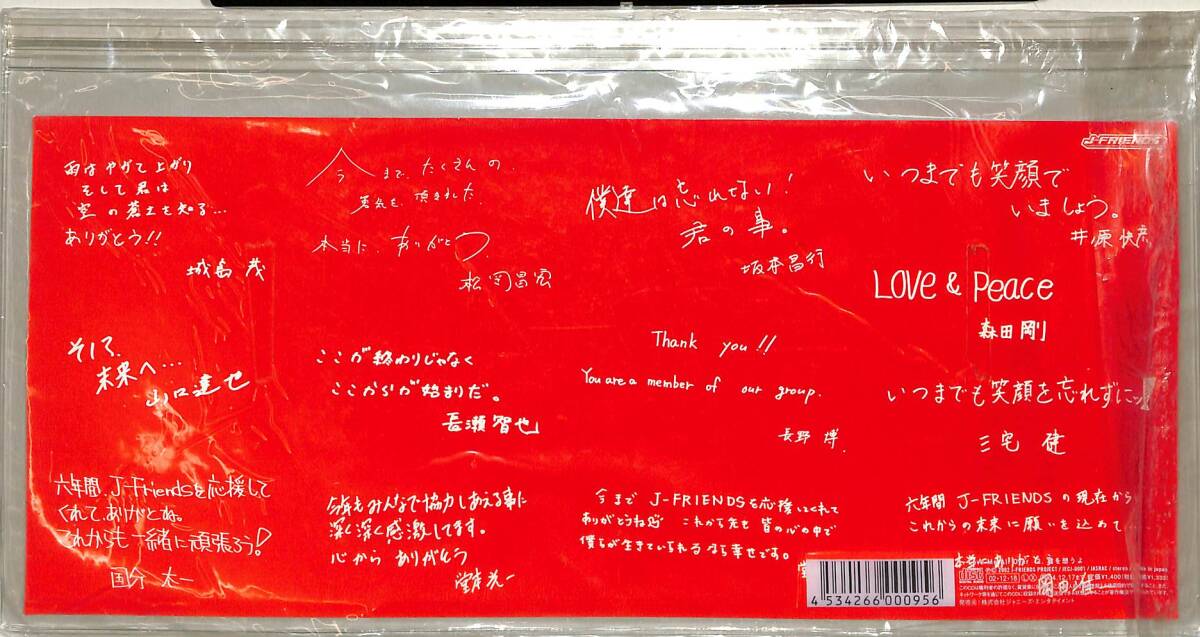 J-FRIENDS
雨はやがて上がり
そして君は
空の蒼さを知る…
ありがとう!!
城島 茂
今まで、たくさんの、
勇気を、頂きました。
本当に、ありがとう
松岡昌宏
僕達は忘れない!
君の事。
坂本昌行
いつまでも笑顔で
いましょう。
井ノ原快彦
LOVE & Peace
森田剛
そして、
未来へ…
山口達也
ここが終わりじゃなく
ここからが始まりだ。
長瀬智也
Thank you!!
You are a member of our group.
長野 博.
いつまでも笑顔を忘れずにッ!
三宅 健
六年間、J-Friendsを応援して
くれて、ありがとね。
これからも一緒に頑張ろう!
国分 太一
今年もみんなで協力しあえる事に
深く深く感激してます。
心から ありがとう
堂本光一
今まで J-FRIENDSを応援してくれて
ありがとうね
これから先も 皆の心の中で
僕らが生きていられるなら幸せです。
堂
六年間 J-FRIENDS の現在から
これからの未来に願いを込めて…
本当にありがとう
岡田准一
℗© 2002 J-FRIENDS PROJECT / JECJ-0001 / JASRAC / stereo / Made in Japan
02-12-18
発売元:株式会社ジャニーズ・エンタテイメント
4 534266 000956